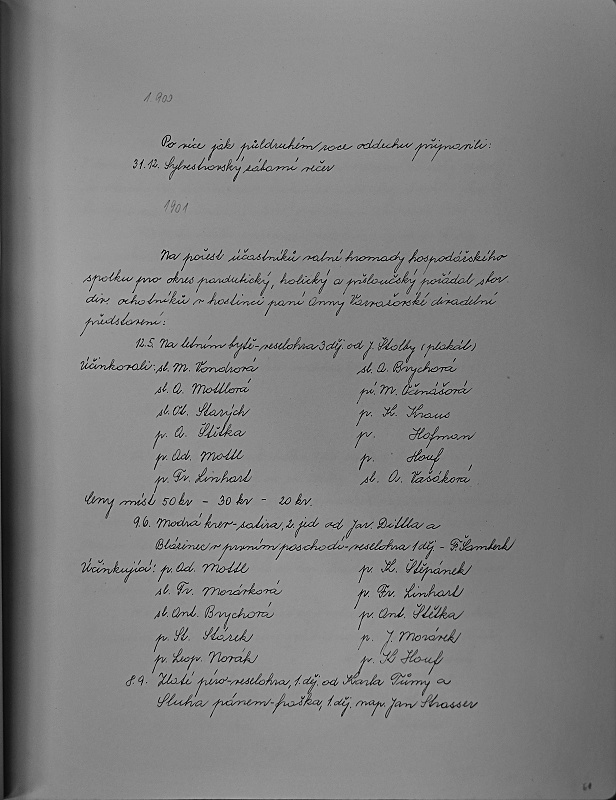 1.900
Po více jak půldruhém roce oddychu připravili:
31.12. Sylvestrovský zábavní večer
1901
Na počest účastníků valné hromady hospodářského
spolku pro okres pardubický, holický a přeloučský pořádal sbor
div. ochotníků v hostinci paní Anny Varvařovské divadelní
představení:
12.5. Na letním bytě-veselohra 3 děj. od J. Štolby (plakát)
Účinkovali: sl. M. Vondrová sl. A. Brychová
sl. A. Mottlová pí. M. Očenášová
sl. Starých p. K. Kraus
p. A. Štětka p. Hofman
p. Ad. Mottl p. Houf
p. Fr. Linhart sl. A. Vašáková
Ceny míst 50 kr - 30 kr - 20 kr.
9.6. Modrá krev-satira, 2 jed. od Jar. Dittla a
Blázinec v prvním poschodí-veselohra 1 děj - F. Šamberk
Účinkující: p. Ad. Mottl p. K. Štěpánek
sl. Fr. Morávková p. Fr. Linhart
sl. Ant. Brychová p. Ant. Štětka
p. St. Stárek p. J. Morávek
p. Leop. Novák p. K. Houf
8.9. Zlaté péro-veselohra, 1 děj. od Karla Tůmy a
Sluha pánem-fraška, 1 děj. nap. Jan Strasser